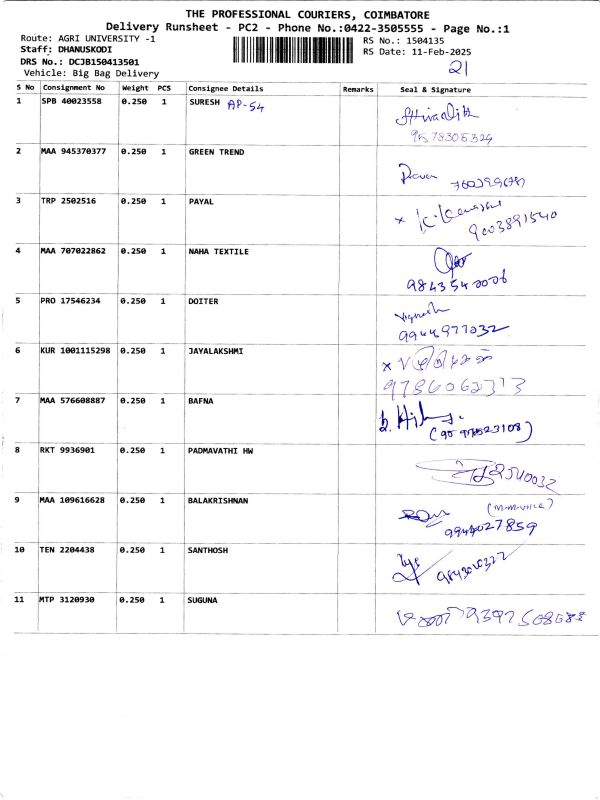 THE PROFESSIONAL COURIERS, COIMBATORE
Delivery Runsheet - PC2 - Phone No.:0422-3505555 - Page No.:1
Route: AGRI UNIVERSITY -1 RS No.: 1504135
Staff: DHANUSKODI RS Date: 11-Feb-2025
DRS No.: DCJB150413501
Vehicle: Big Bag Delivery 21
S No Consignment No Weight PCS Consignee Details Remarks Seal & Signature
1 SPB 40023558 0.250 1 SURESH AP-54
9578305324
2 MAA 945370377 0.250 1 GREEN TREND
3 TRP 2502516 0.250 1 PAYAL
9003891540
4 MAA 707022862 0.250 1 NAHA TEXTILE
9843540006
5 PRO 17546234 0.250 1 DOITER
Vignesh
9944977032
6 KUR 1001115298 0.250 1 JAYALAKSHMI
7 MAA 576608887 0.250 1 BAFNA
8 RKT 9936901 0.250 1 PADMAVATHI HW
9 MAA 109616628 0.250 1 BALAKRISHNAN
10 TEN 2204438 0.250 1 SANTHOSH
11 MTP 3120930 0.250 1 SUGUNA